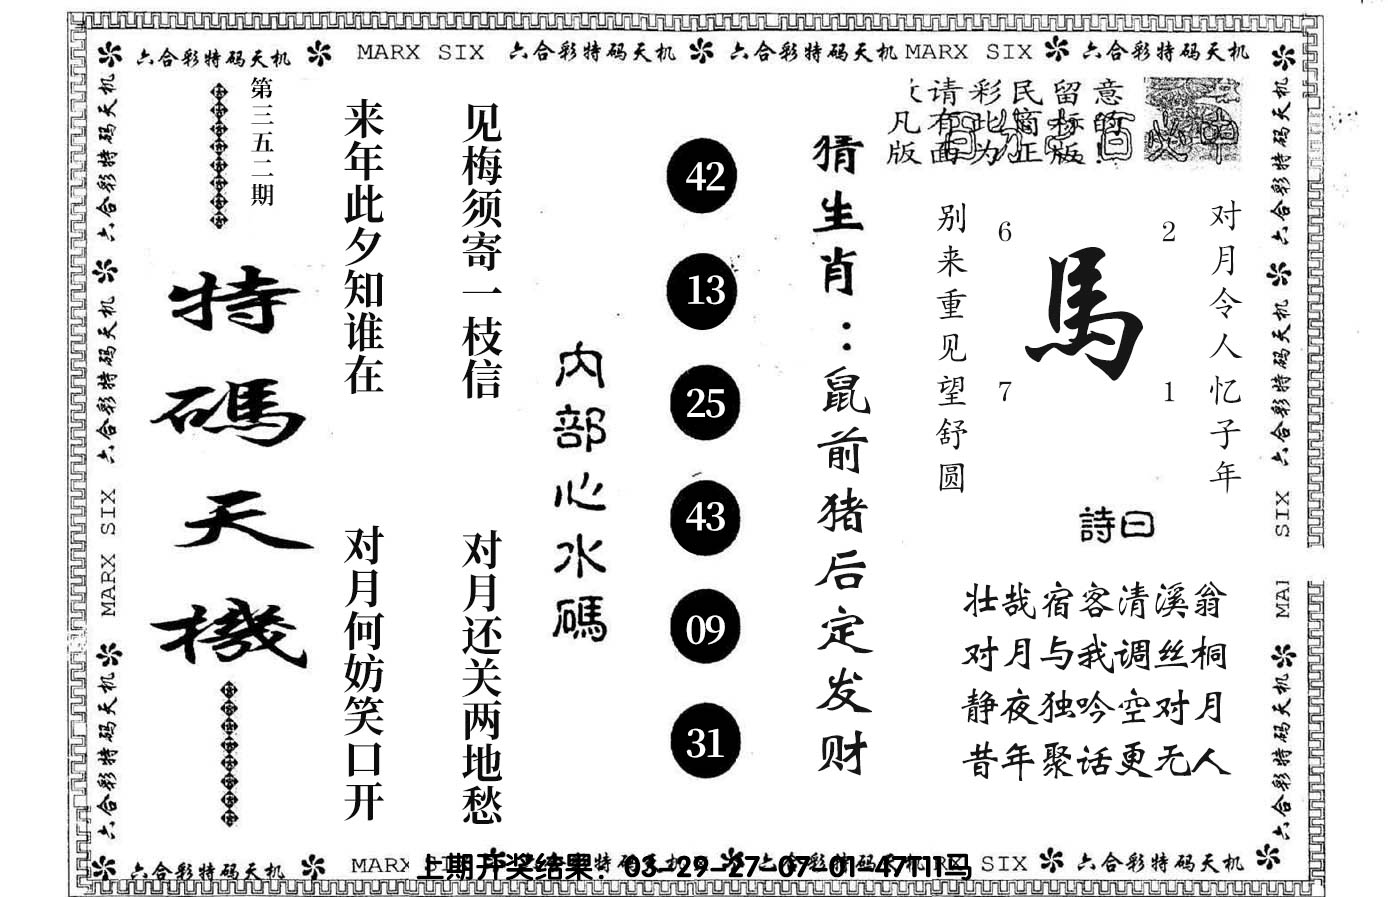 六合彩特码天机 MARX SIX 六合彩特码天机 六合彩特码天机 MARX SIX 六合彩特码天机
第三五二期
特碼天機
来年此夕知谁在
对月何妨笑口开
见梅须寄一枝信
对月还关两地愁
内部心水碼
42
13
25
43
09
31
猜生肖：鼠前猪后定发财
请彩民留意
凡有此商标的
版面为正版!
对月令人忆子年
别来重见望舒圆
6 2
馬
7 1
詩曰
壮哉宿客清溪翁
对月与我调丝桐
静夜独吟空对月
昔年聚话更无人
六合彩特码天机
六合彩特码天机
MARX SIX
六合彩特码天机
六合彩特码天机
六合彩特码天机
SIX
六合彩特码天机
六合彩特码天机 MARX SIX 六合彩特码天机
上期开奖结果：03-29-27-07-01-47T11马